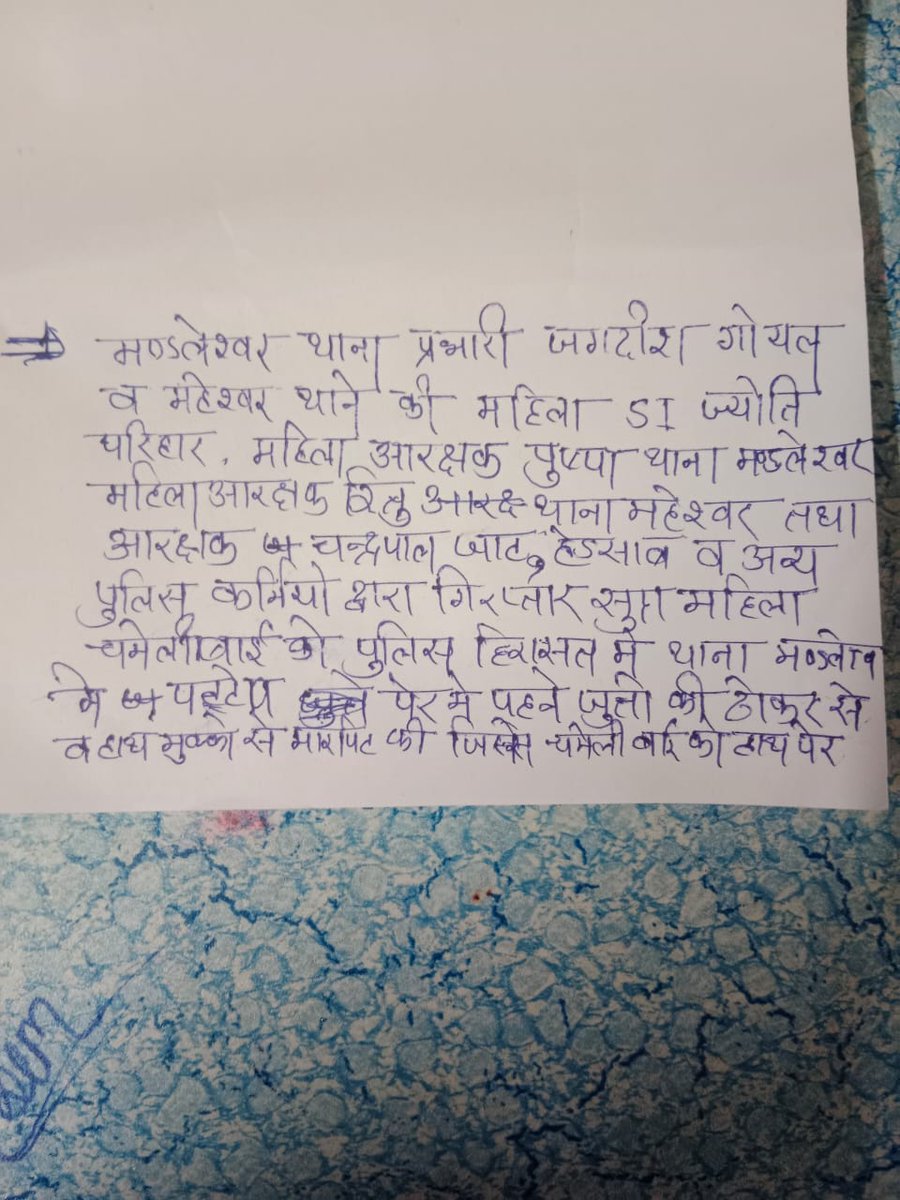 ⇒ मण्डलेश्वर थाना प्रभारी जगदीश गोयल
व महेश्वर थाने की महिला SI ज्योति
परिहार, महिला आरक्षक पुष्पा थाना मण्डलेश्वर
महिला आरक्षक रितु आरक्ष थाना महेश्वर तथा
आरक्षक चन्द्रपाल जाट, हेडसाब व अन्य
पुलिस कर्मियो द्वारा गिरप्तार सुदा महिला
चमेलीबाई को पुलिस हिरासत मे थाना
मे पैर मे पहने जुतो की ठोकर से
व हाथ मुक्को से मारपिट की जिससे चमेली बाई को हाथ पैर